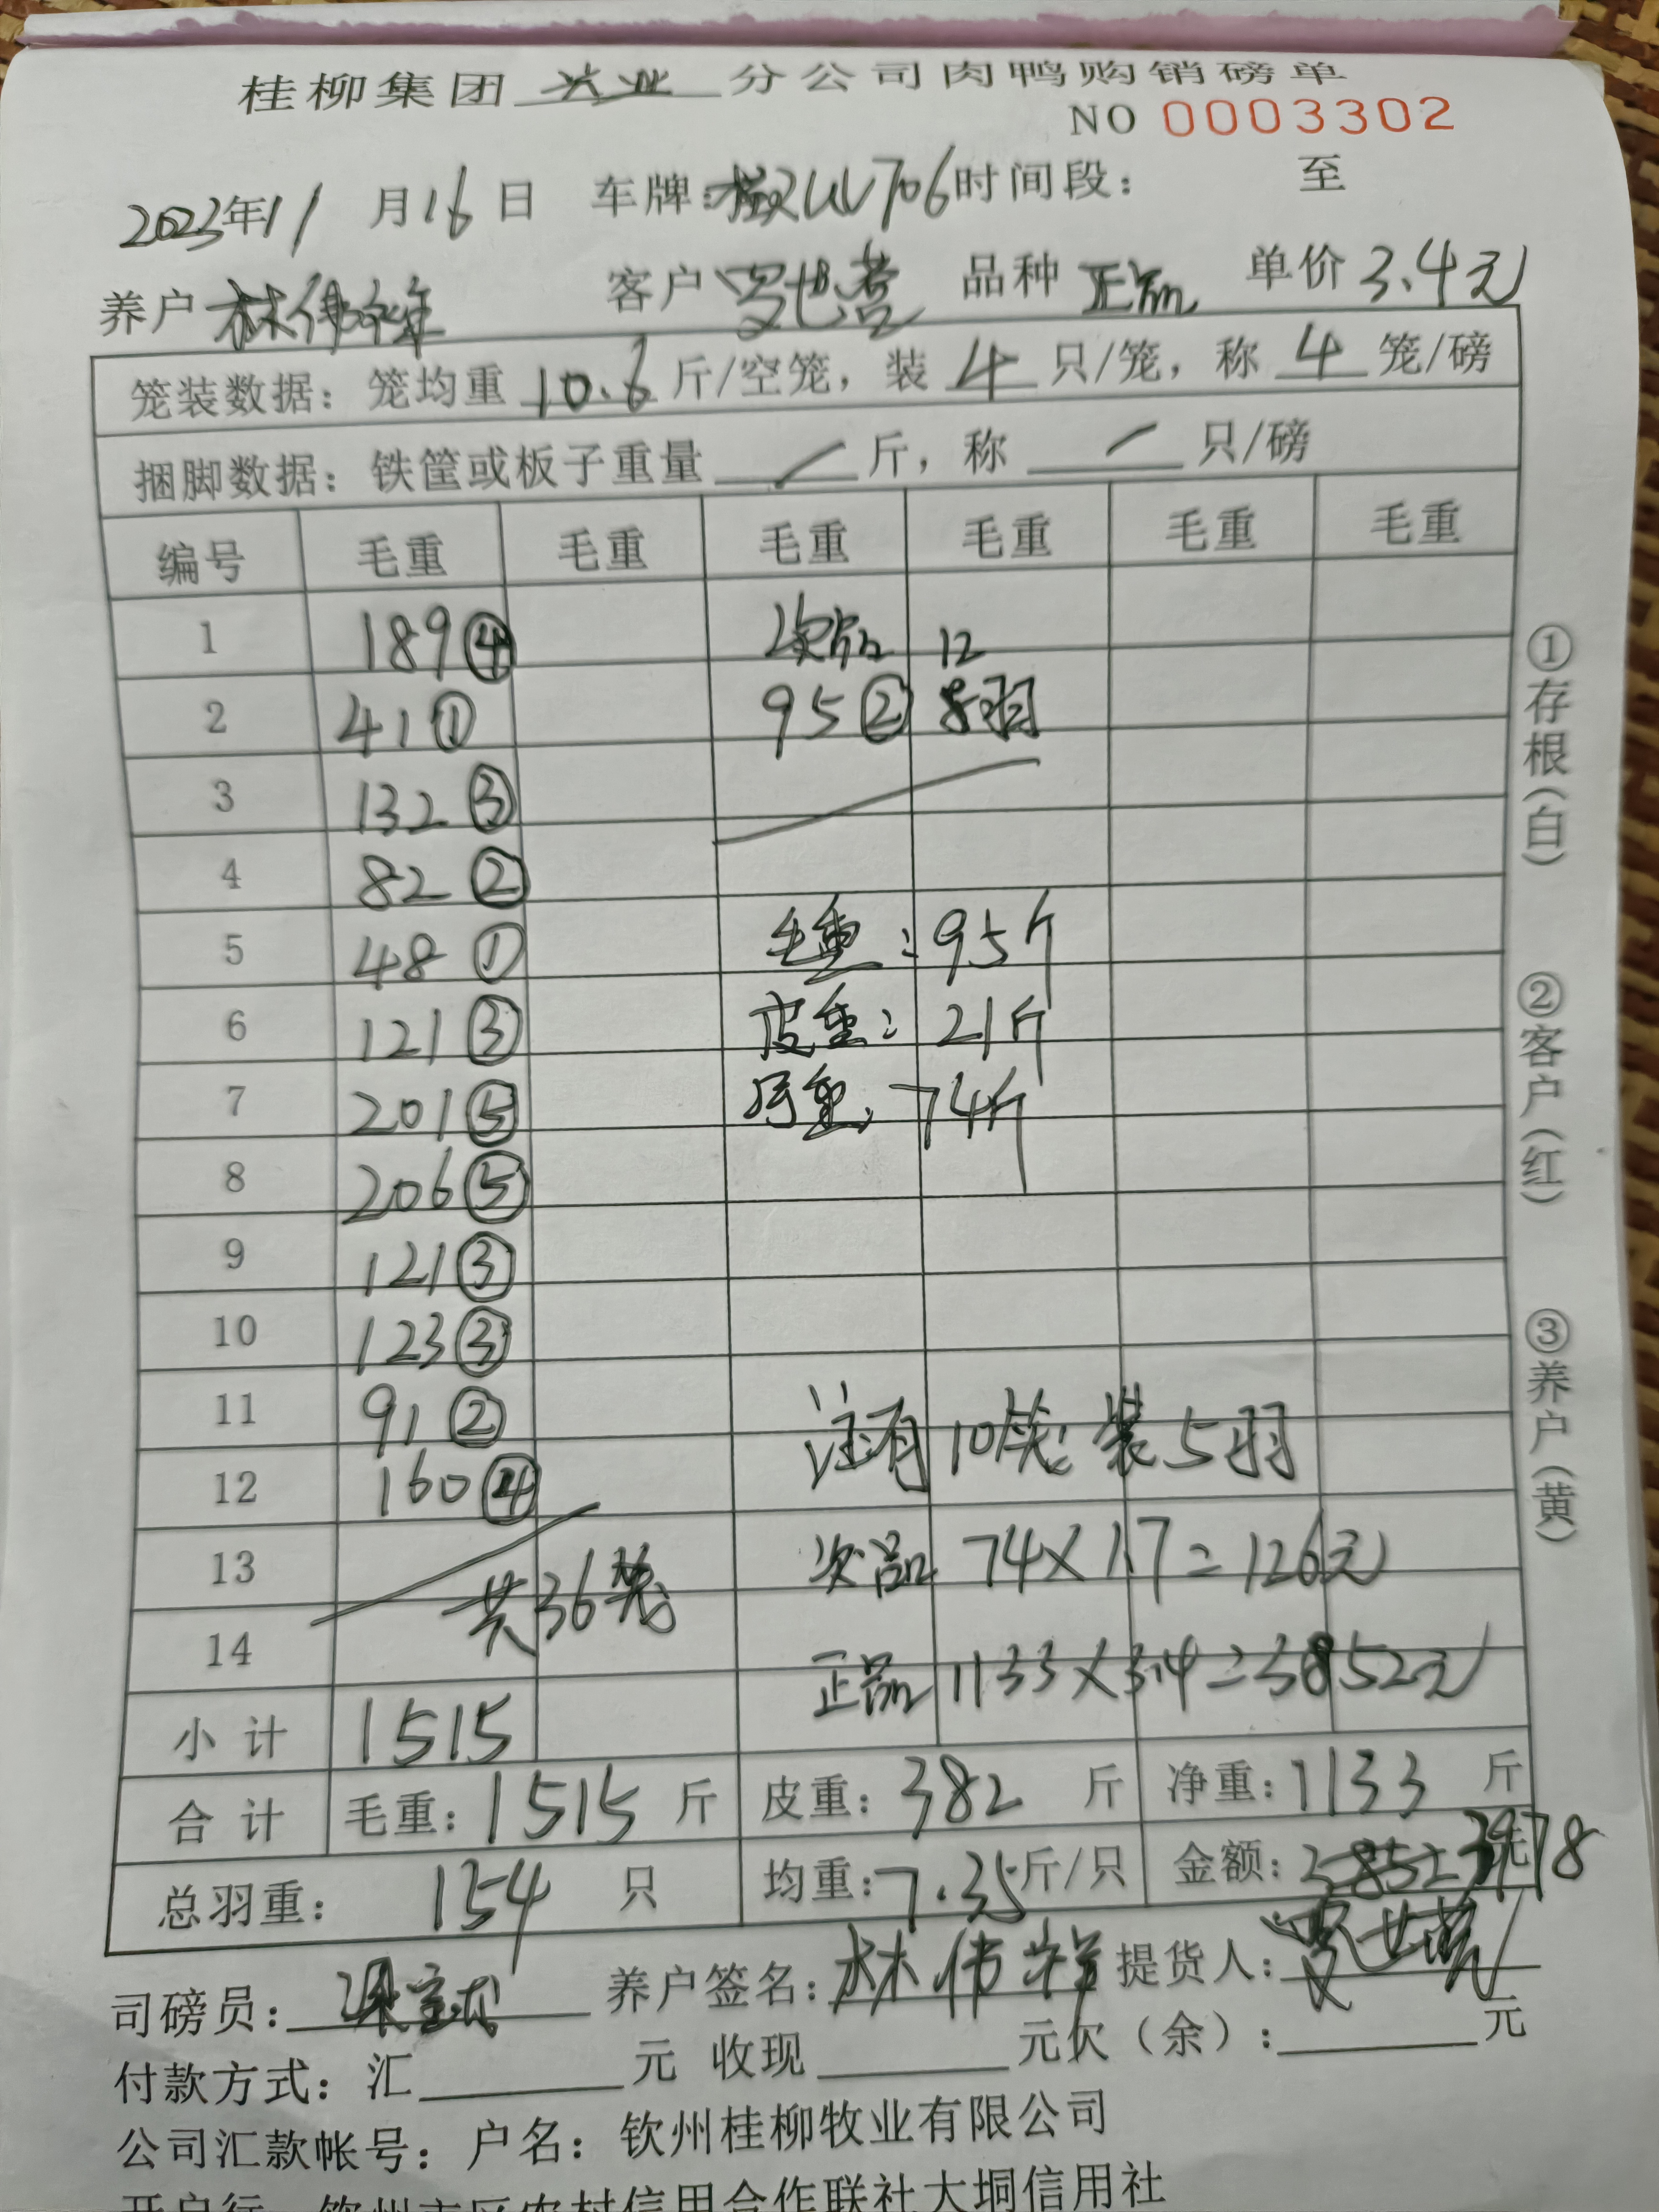 桂柳集团 兴业 分公司肉鸭购销磅单
NO 0003302
2023年11月16日 车牌: 时间段: 至
养户 林伟祥 客户 罗世营 品种 正品 单价 3.4元
笼装数据: 笼均重 10.6 斤/空笼, 装 4 只/笼, 称 4 笼/磅
捆脚数据: 铁筐或板子重量 / 斤, 称 / 只/磅
编号 毛重 毛重 毛重 毛重 毛重 毛重
1 189④ 次品 12
2 41① 95② 羽
3 132③
4 82②
5 48① 毛重: 95斤
6 121③ 皮重: 21斤
7 201⑤ 净重: 74斤
8 206⑤
9 121③
10 123③
11 91② 注有10笼装5羽
12 160④
13 共36笼 次品 74×1.7=126元
14 正品 1133×3.4=3852元
小计 1515
合计 毛重: 1515 斤 皮重: 382 斤 净重: 1133 斤
总羽重: 154 只 均重: 7.35 斤/只 金额: 3852 3978 元
司磅员: 养户签名: 林伟祥 提货人: 罗世营
付款方式: 汇 元 收现 元欠(余): 元
公司汇款帐号: 户名: 钦州桂柳牧业有限公司
开户行 钦州市区农村信用合作联社大垌信用社
①存根(白) ②客户(红) ③养户(黄)